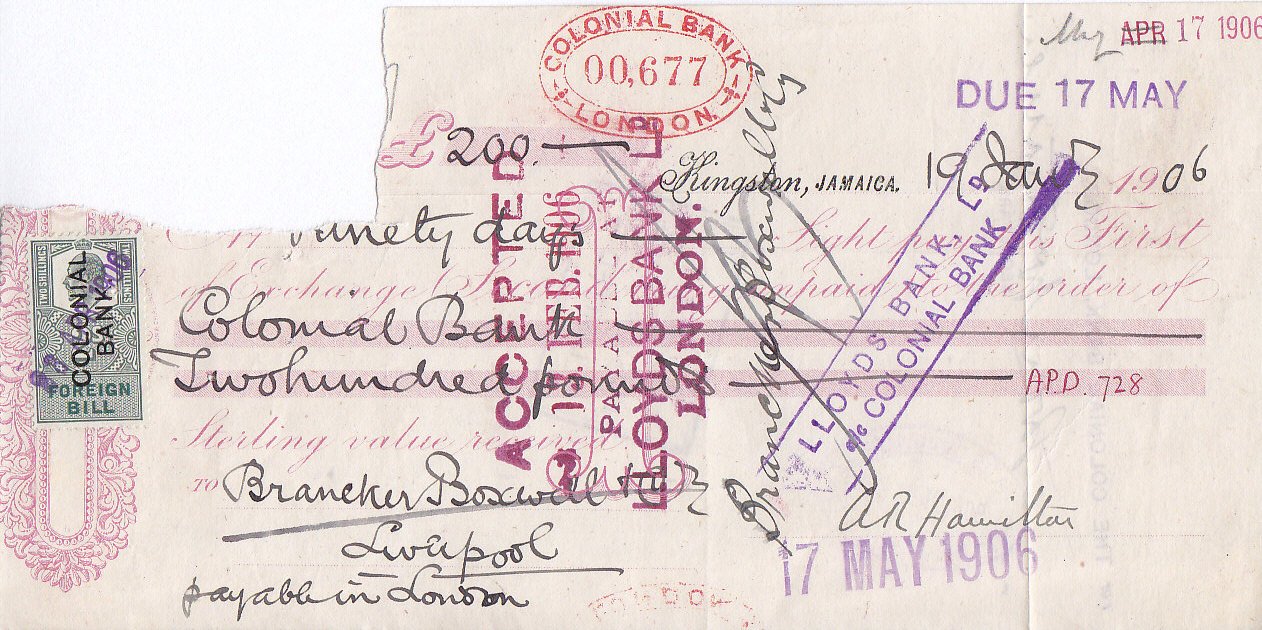 COLONIAL BANK
00,677
LONDON.
May APR 17 1906
DUE 17 MAY
£ 200.
Kingston, JAMAICA. 19 Jany 1906
Ninety days Sight pay this First
of Exchange (Second unpaid) to the order of
Colonial Bank
Two hundred pounds
A.P.D. 728
Sterling value received
TO Brancker Boxwell & Co
Liverpool
payable in London
A R Hamilton
17 MAY 1906
TWO SHILLINGS
COLONIAL
BANK
FOREIGN
BILL
ACCEPTED
FEB. 1906
LLOYDS BANK LD
LONDON.
Brancker Boxwell & Co
LLOYDS BANK, LD
a/c COLONIAL BANK
LONDON